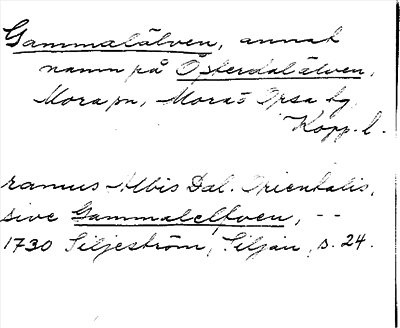 Gammalälven, annat
namn på Österdalälven,
Mora sn, Mora o Orsa tg
Kopp. l.
ramus Albis Dal. Orientalis,
sive Gammalelfven, --
1730 Siljeström, Siljan, s. 24.